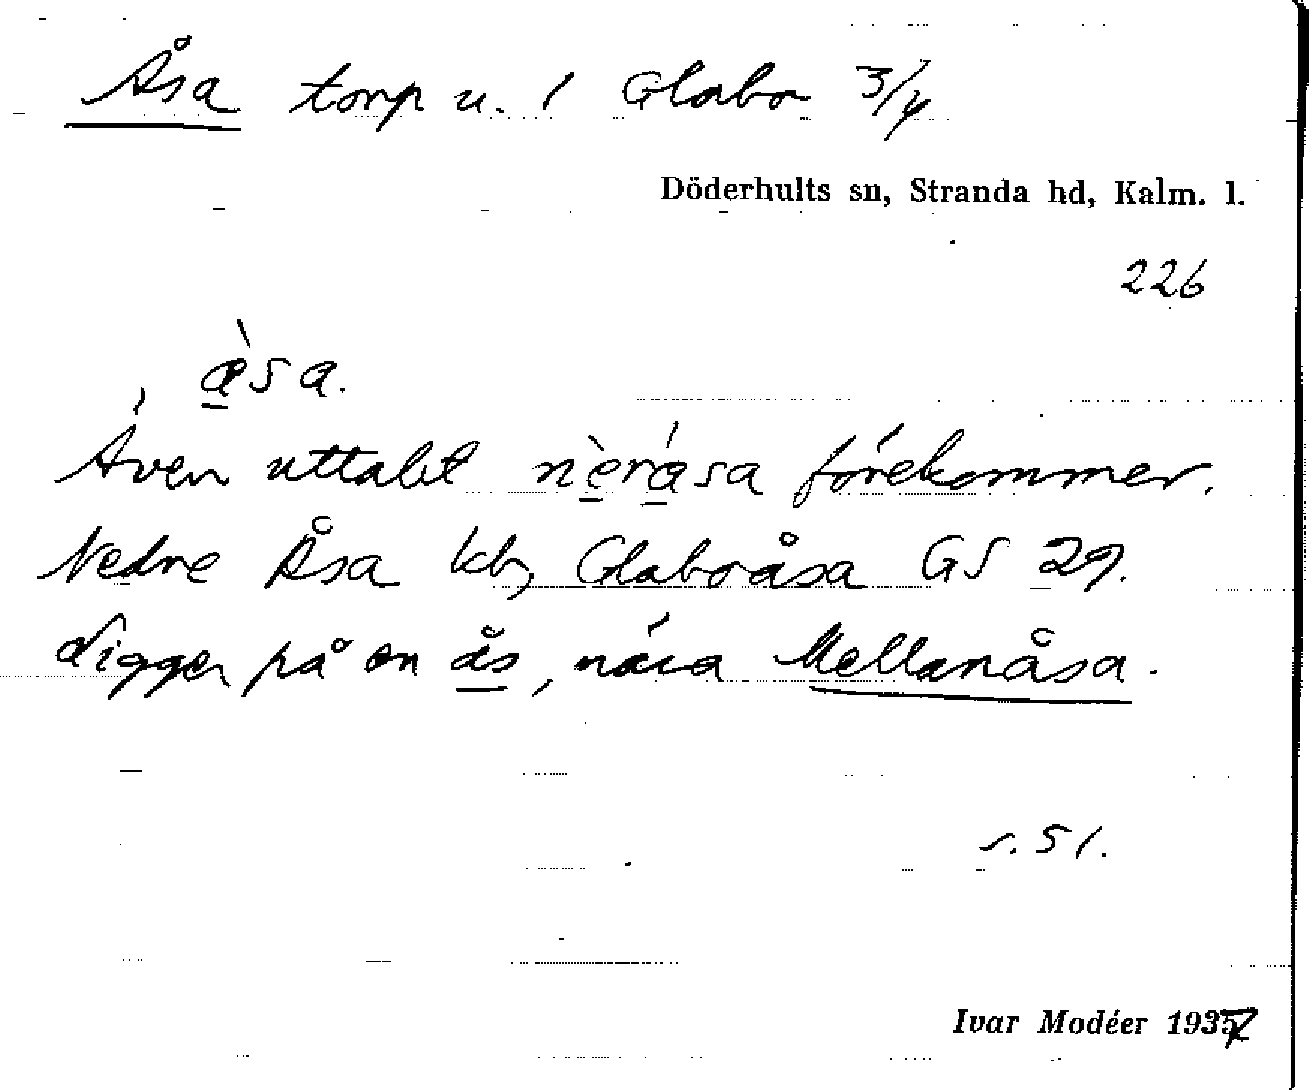 Åsa torp u. 1 Glabo 3/4
Döderhults sn, Stranda hd, Kalm. l.
226
ȧ̠̀sa.
Även uttalet nè̠rá̠sa förekommer.
Nedre Åsa kb, Glaboåsa GS 29.
Ligger på en ås, nära Mellanåsa.
s. 51.
Ivar Modéer 1937